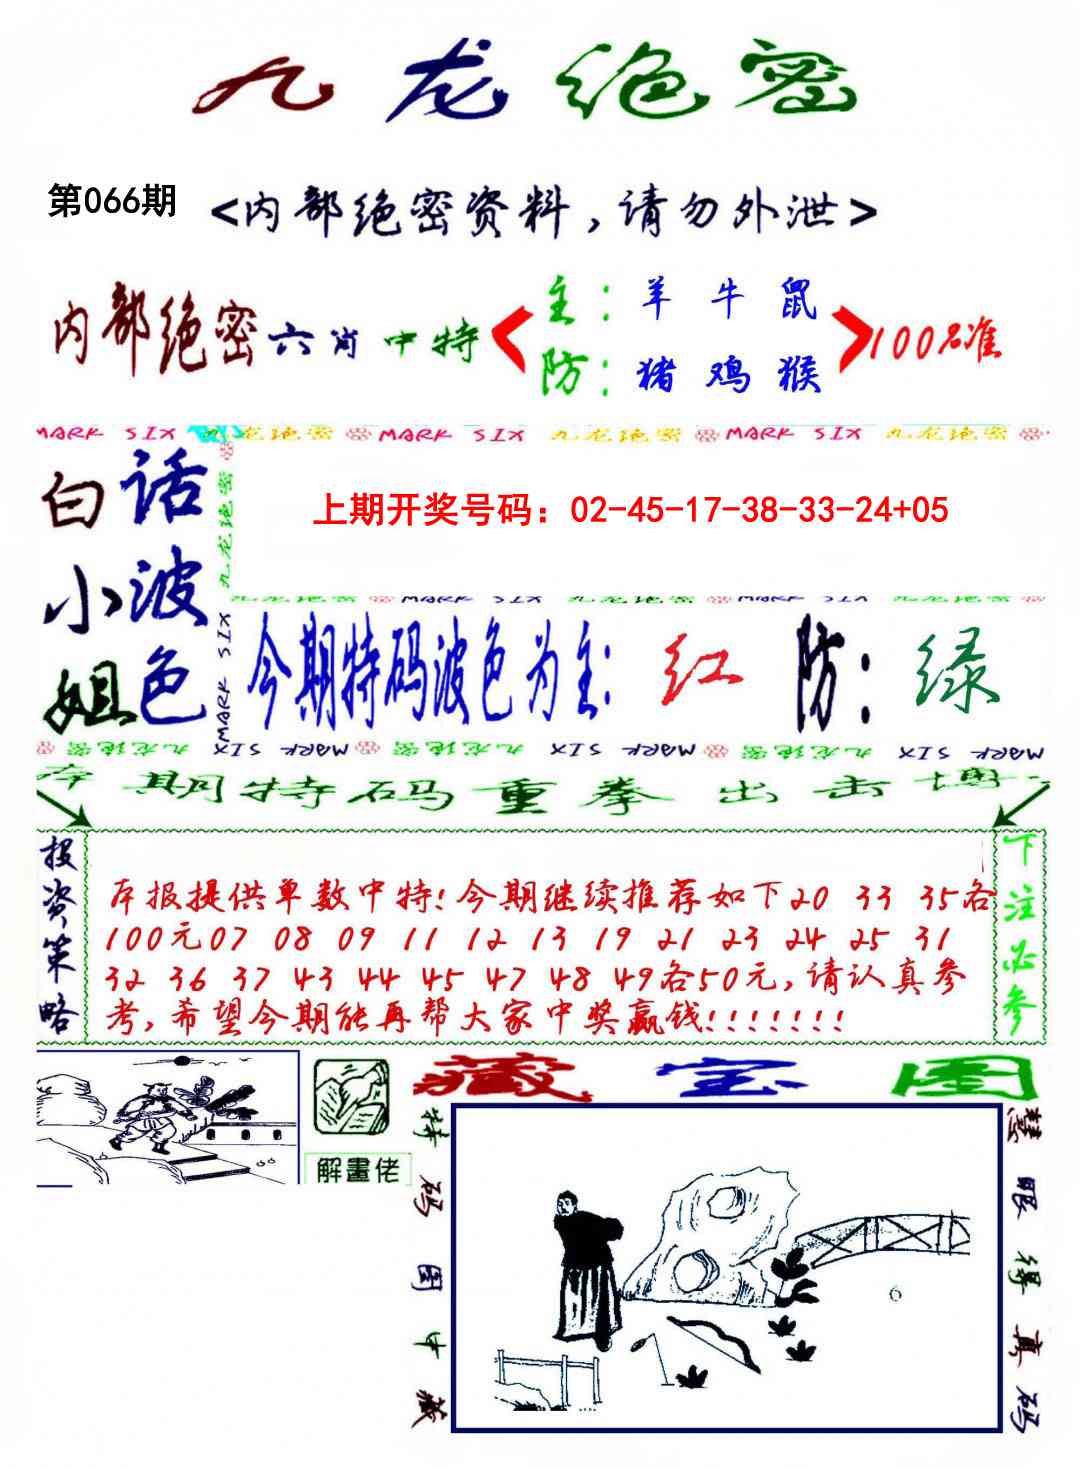 九龙绝密
第066期
<内部绝密资料,请勿外泄>
内部绝密六肖中特
主:羊牛鼠
防:猪鸡猴
100%准
MARK SIX 九龙绝密 MARK SIX 九龙绝密 MARK SIX 九龙绝密
白话
小波
姐色
九龙绝密
MARK SIX
上期开奖号码：02-45-17-38-33-24+05
九龙绝密 MARK SIX 九龙绝密 MARK SIX 九龙绝密
今期特码波色为主:红 防:绿
九龙绝密 MARK SIX 九龙绝密 MARK SIX 九龙绝密 MARK SIX
本期特码重拳出击博
投资策略
本报提供单数中特!今期继续推荐如下20 33 35各
100元07 08 09 11 12 13 19 21 23 24 25 31
32 36 37 43 44 45 47 48 49各50元,请认真参
考,希望今期能再帮大家中奖赢钱!!!!!!!
下注必参
解畫佬
藏宝图
特码图中藏
慧眼得真码
6